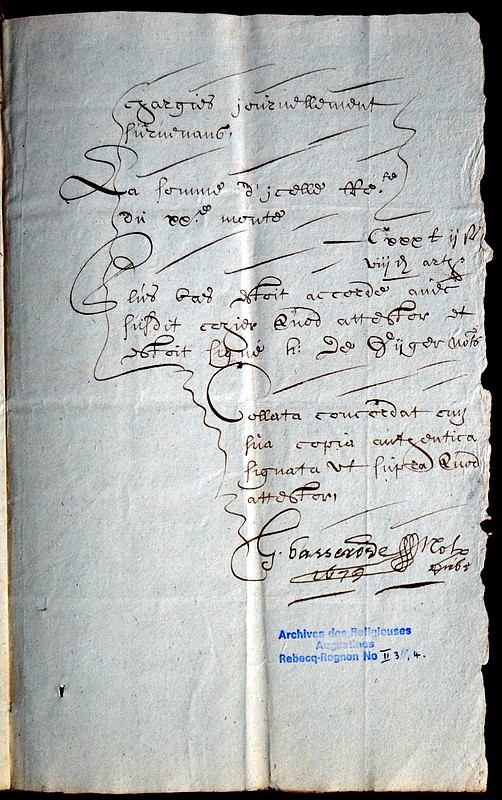 chargies journellement
survenans.
La somme d'icelle Re.te
du xx.e monte
C xxx t ij
viij d art.
Plus bas estoit accordé avecq
susdit cayer quod attestor et
estoit signé h: De Nots
Collata concordat cum
sua copia authentica
signata ut supra quod
attestor,
G. Vasserode Nots
1679 pub
Archives des Religieuses
Augustines
Rebecq-Rognon No II 3 , 4.